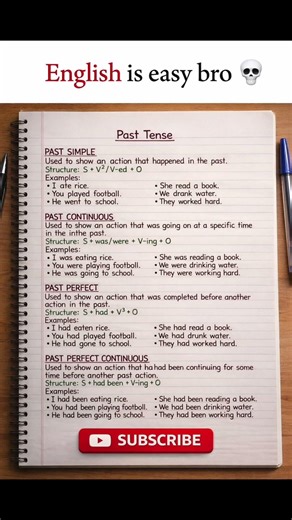 English is easy bro 💀
Past Tense
PAST SIMPLE
Used to show an action that happened in the past.
Structure: S + V²/V-ed + O
Examples:
• I ate rice. • She read a book.
• You played football. • We drank water.
• He went to school. • They worked hard.
PAST CONTINUOUS
Used to show an action that was going on at a specific time
in the inthe past.
Structure: S + was/were + V-ing + O
Examples:
• I was eating rice. • She was reading a book.
• You were playing football. • We were drinking water.
• He was going to school. • They were working hard.
PAST PERFECT
Used to show an action that was completed before another
action in the past.
Structure: S + had + V³ + O
Examples:
• I had eaten rice. • She had read a book.
• You had played football. • We had drunk water.
• He had gone to school. • They had worked hard.
PAST PERFECT CONTINUOUS
Used to show an action that ha had been continuing for some
time before another past action.
Structure: S + had been + V-ing + O
Examples:
• I had been eating rice. • She had been reading a book.
• You had been playing football. • We had been drinking water.
• He had been going to school. • They had been working hard.
SUBSCRIBE